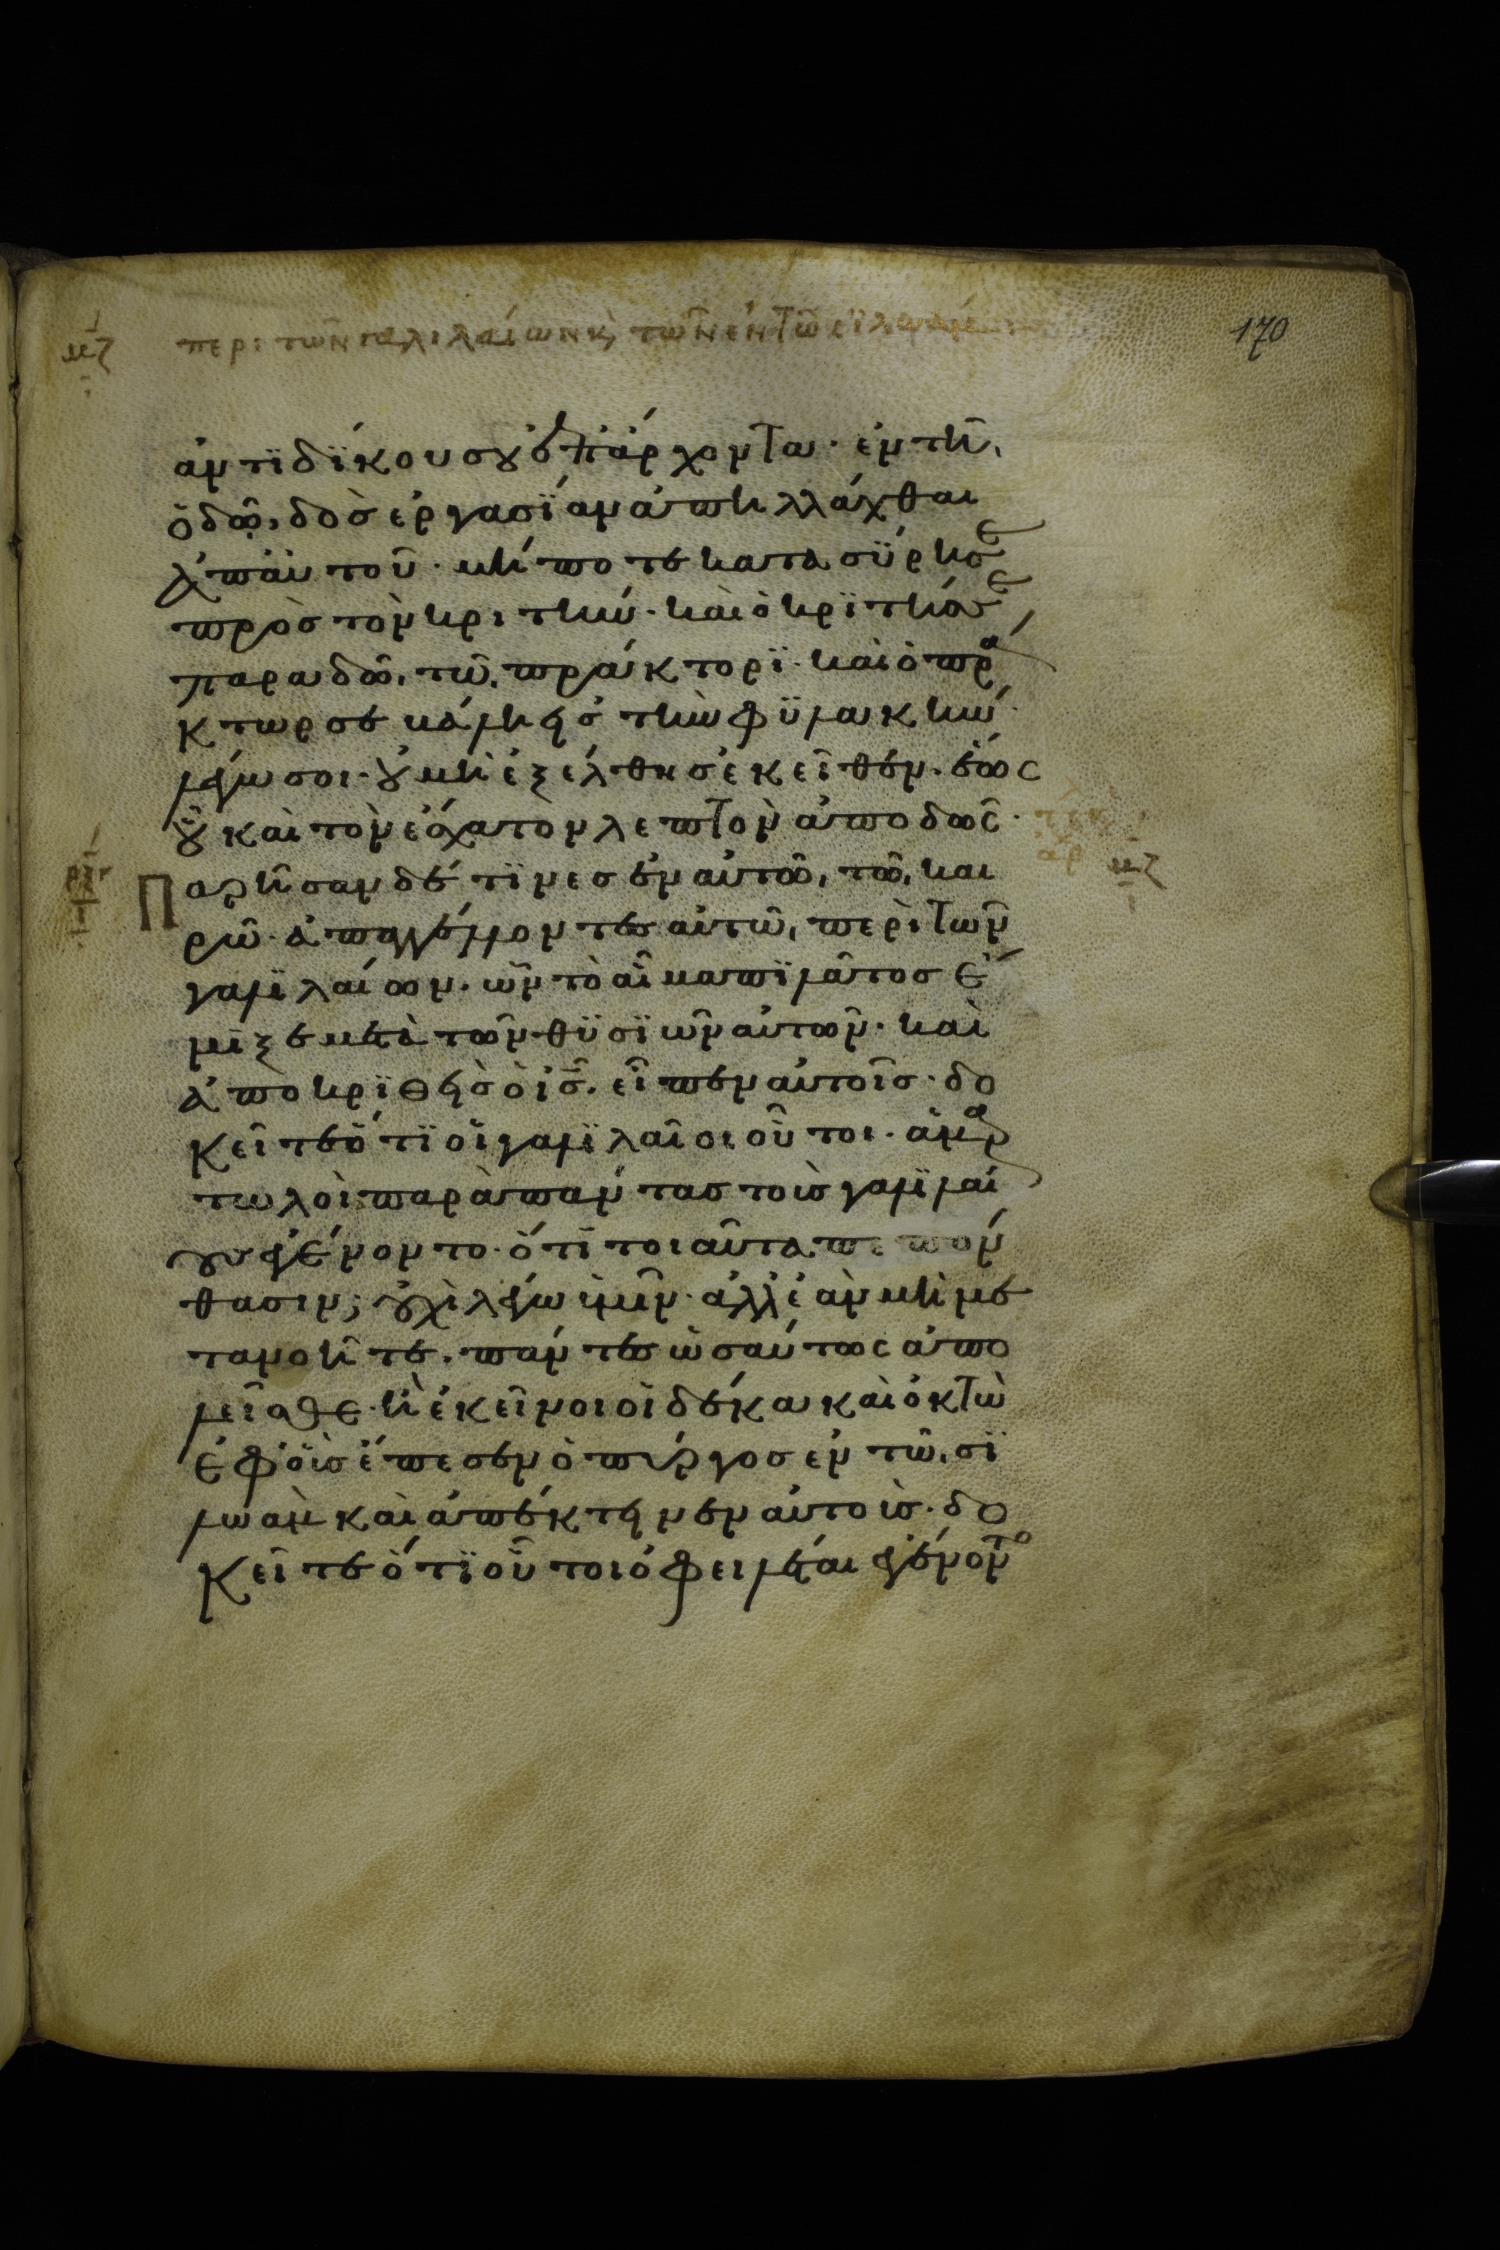 μζ περι τῶν γαλιλαίων κ, τῶν ἐν τῶ σϊλωάμ
170
ἀντϊδΐκου σου ἐπ' ἄρχοντα· ἐν τῆ,
ὁδῶ, δὸσ ἐργασΐαν ἀπηλλάχθαι
ἀπ' αὐτοῦ· μήποτε κατασΰρη σε
πρὸσ τὸν κριτήν· καὶ ὁ κρϊτήσ σε
παραδῶ, τῶ, πράκτορϊ· καὶ ὁ πρά
κτωρ σε βάλη εἰσ τὴν φϋλακήν·
λέγω σοι· οὐ μὴ ἐξέλθησ ἐκεῖθεν· ἕως
οὗ καὶ τὸν ἔσχατον λεπτὸν ἀποδῶς·
τέλ
ἀρ μζ
Παρῆσαν δέ τϊνεσ ἐν αὐτῶ, τῶ, και
ρῶ· ἀπαγγέλλοντεσ αὐτῶ, περὶ τῶν
γαλϊλαίων· ὧν τὸ αἷμα πϊλᾶτοσ ἔ
μϊξε μετὰ τῶν θϋσϊῶν αὐτῶν· καὶ
ἀποκρϊθεὶσ ὁ ισ̅· εἶπεν αὐτοῖσ· δο
κεῖτε ὅτϊ οἱ γαλϊλαῖοι οὗτοι· ἁμαρ
τωλοὶ παρὰ πάντασ τοὺσ γαλϊλαί
ουσ ἐγένοντο· ὅτϊ τοιαῦτα πεπόν
θασιν; οὐχὶ λέγω ὑμῖν· ἀλλ' ἐὰν μὴ με
τανοῆτε· πάντεσ ὡσαύτως ἀπο
λεῖσθε· ἢ ἐκεῖνοι οἱ δέκα καὶ ὀκτὼ
ἐφ' οὓσ ἔπεσεν ὁ πύργοσ ἐν τῶ, σϊ
λωὰμ καὶ ἀπέκτεινεν αὐτοὺσ· δο
κεῖτε ὅτϊ οὗτοι ὀφειλέται ἐγένοντο